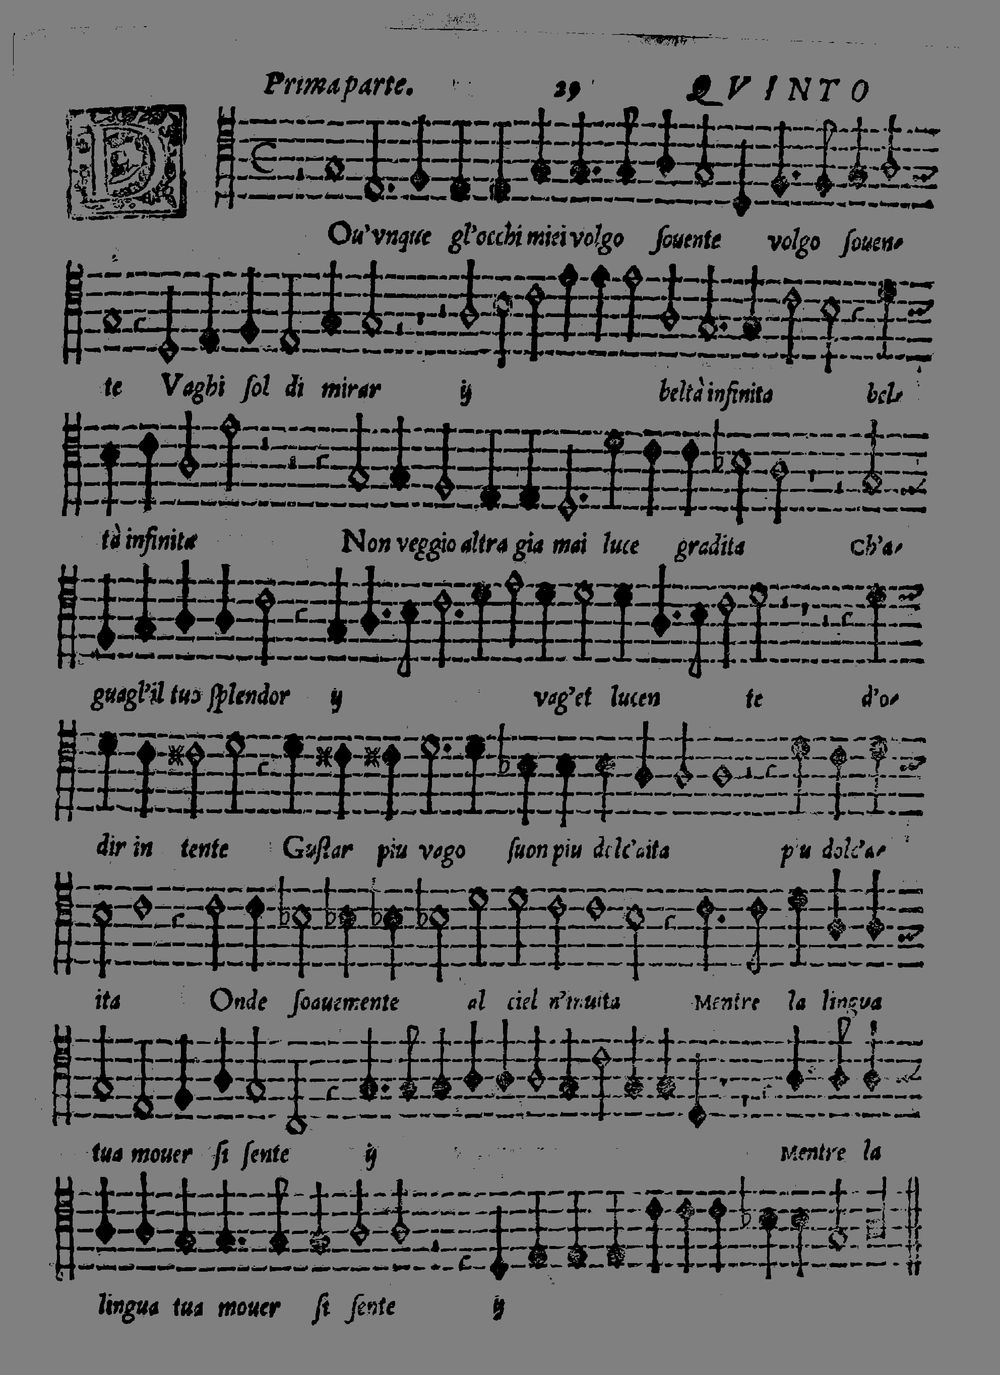 Prima parte. 29 QVINTO
D
Ou'vnque gl'occhi miei volgo souente volgo souen-
te Vaghi sol di mirar ij beltà infinita bel-
tà infinita Non veggio altra gia mai luce gradita Ch'a-
guagl'il tuo splendor ij vag'et lucen te d'o-
dir in tente Gustar piu vago suon piu dolc'aita piu dolc'a-
ita Onde soauemente al ciel n'inuita Mentre la lingua
tua mouer si sente ij Mentre la
lingua tua mouer si sente ij